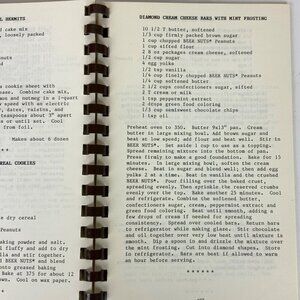 L HERMITS
d cake mix
, loosely packed
Peanuts
a cookie sheet with
ease. Combine cake mix,
on and nutmeg in a 1-quart
speed with an electric
, dates, raisins, and
teaspoons about 3" apart
s or until set. Cool
from foil.
Makes about 6 dozen
REAL COOKIES
dry cereal
Peanuts
aking powder and salt.
l fluffy and add to dry
l well blended. Stir
d BEER NUTS® and blend
onto greased baking
Bake at 375 for about 12
own. Cool on wax paper.
DIAMOND CREAM CHEESE BARS WITH MINT FROSTING
10 1/2 T butter, softened
2/3 cup firmly packed brown sugar
1 cup BEER NUTS® Peanuts
1 cup sifted flour
2 8 oz packages cream cheese, softened
1/2 cup sugar
4 egg yolks
1/2 tsp vanilla
1/4 cup finely chopped BEER NUTS® Peanuts
1 cup softened butter
2 1/2 cups confectioners sugar, sifted
2 T cream or milk
1 tsp peppermint extract
2 drops green food coloring
1/3 cup semisweet chocolate chips
1 tsp oil
Preheat oven to 350. Butter 9x13" pan. Cream
butter in large mixing bowl. Add brown sugar and
beat at low speed; add flour and beat well. Stir in
BEER NUTS®. Set aside 1 cup to use as a topping.
Spread remaining mixture into the bottom of pan.
Press firmly to make a good foundation. Bake for 15
minutes. In large mixing bowl, soften the cream
cheese. Beat in sugar and blend well; then add egg
yolks 2 at a time. Beat in vanilla and the crushed
BEER NUTS®. Pour filling over the baked crust
spreading evenly. Then sprinkle the reserved crumbs
evenly over the top. Bake another 25 minutes. Cool
and refrigerate. Combine the softened butter,
confectioners sugar, cream, peppermint extract and
green food coloring. Beat until smooth, adding a
few drops of cream if needed for spreading
consistency. Spread over cooled bars. Return bars
to refrigerator while making glaze. Stir chocolate
and oil together over very low heat until mixture is
smooth. Dip a spoon in and drizzle the mixture over
the mint frosting. Cut into diamond shapes. Store
in refrigerator. Bars are best if allowed to warm
an hour before serving.
* * * * * *